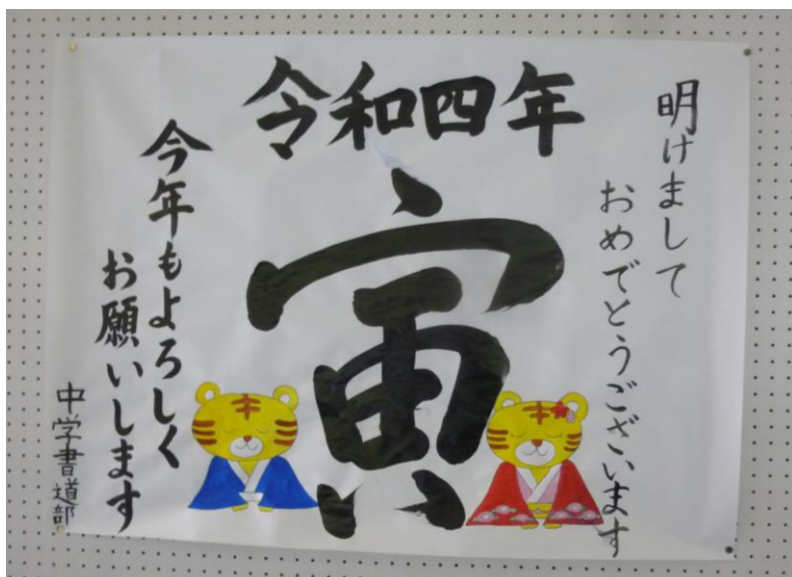 令和四年
寅
明けまして
おめでとうございます
今年もよろしく
お願いします
中学書道部